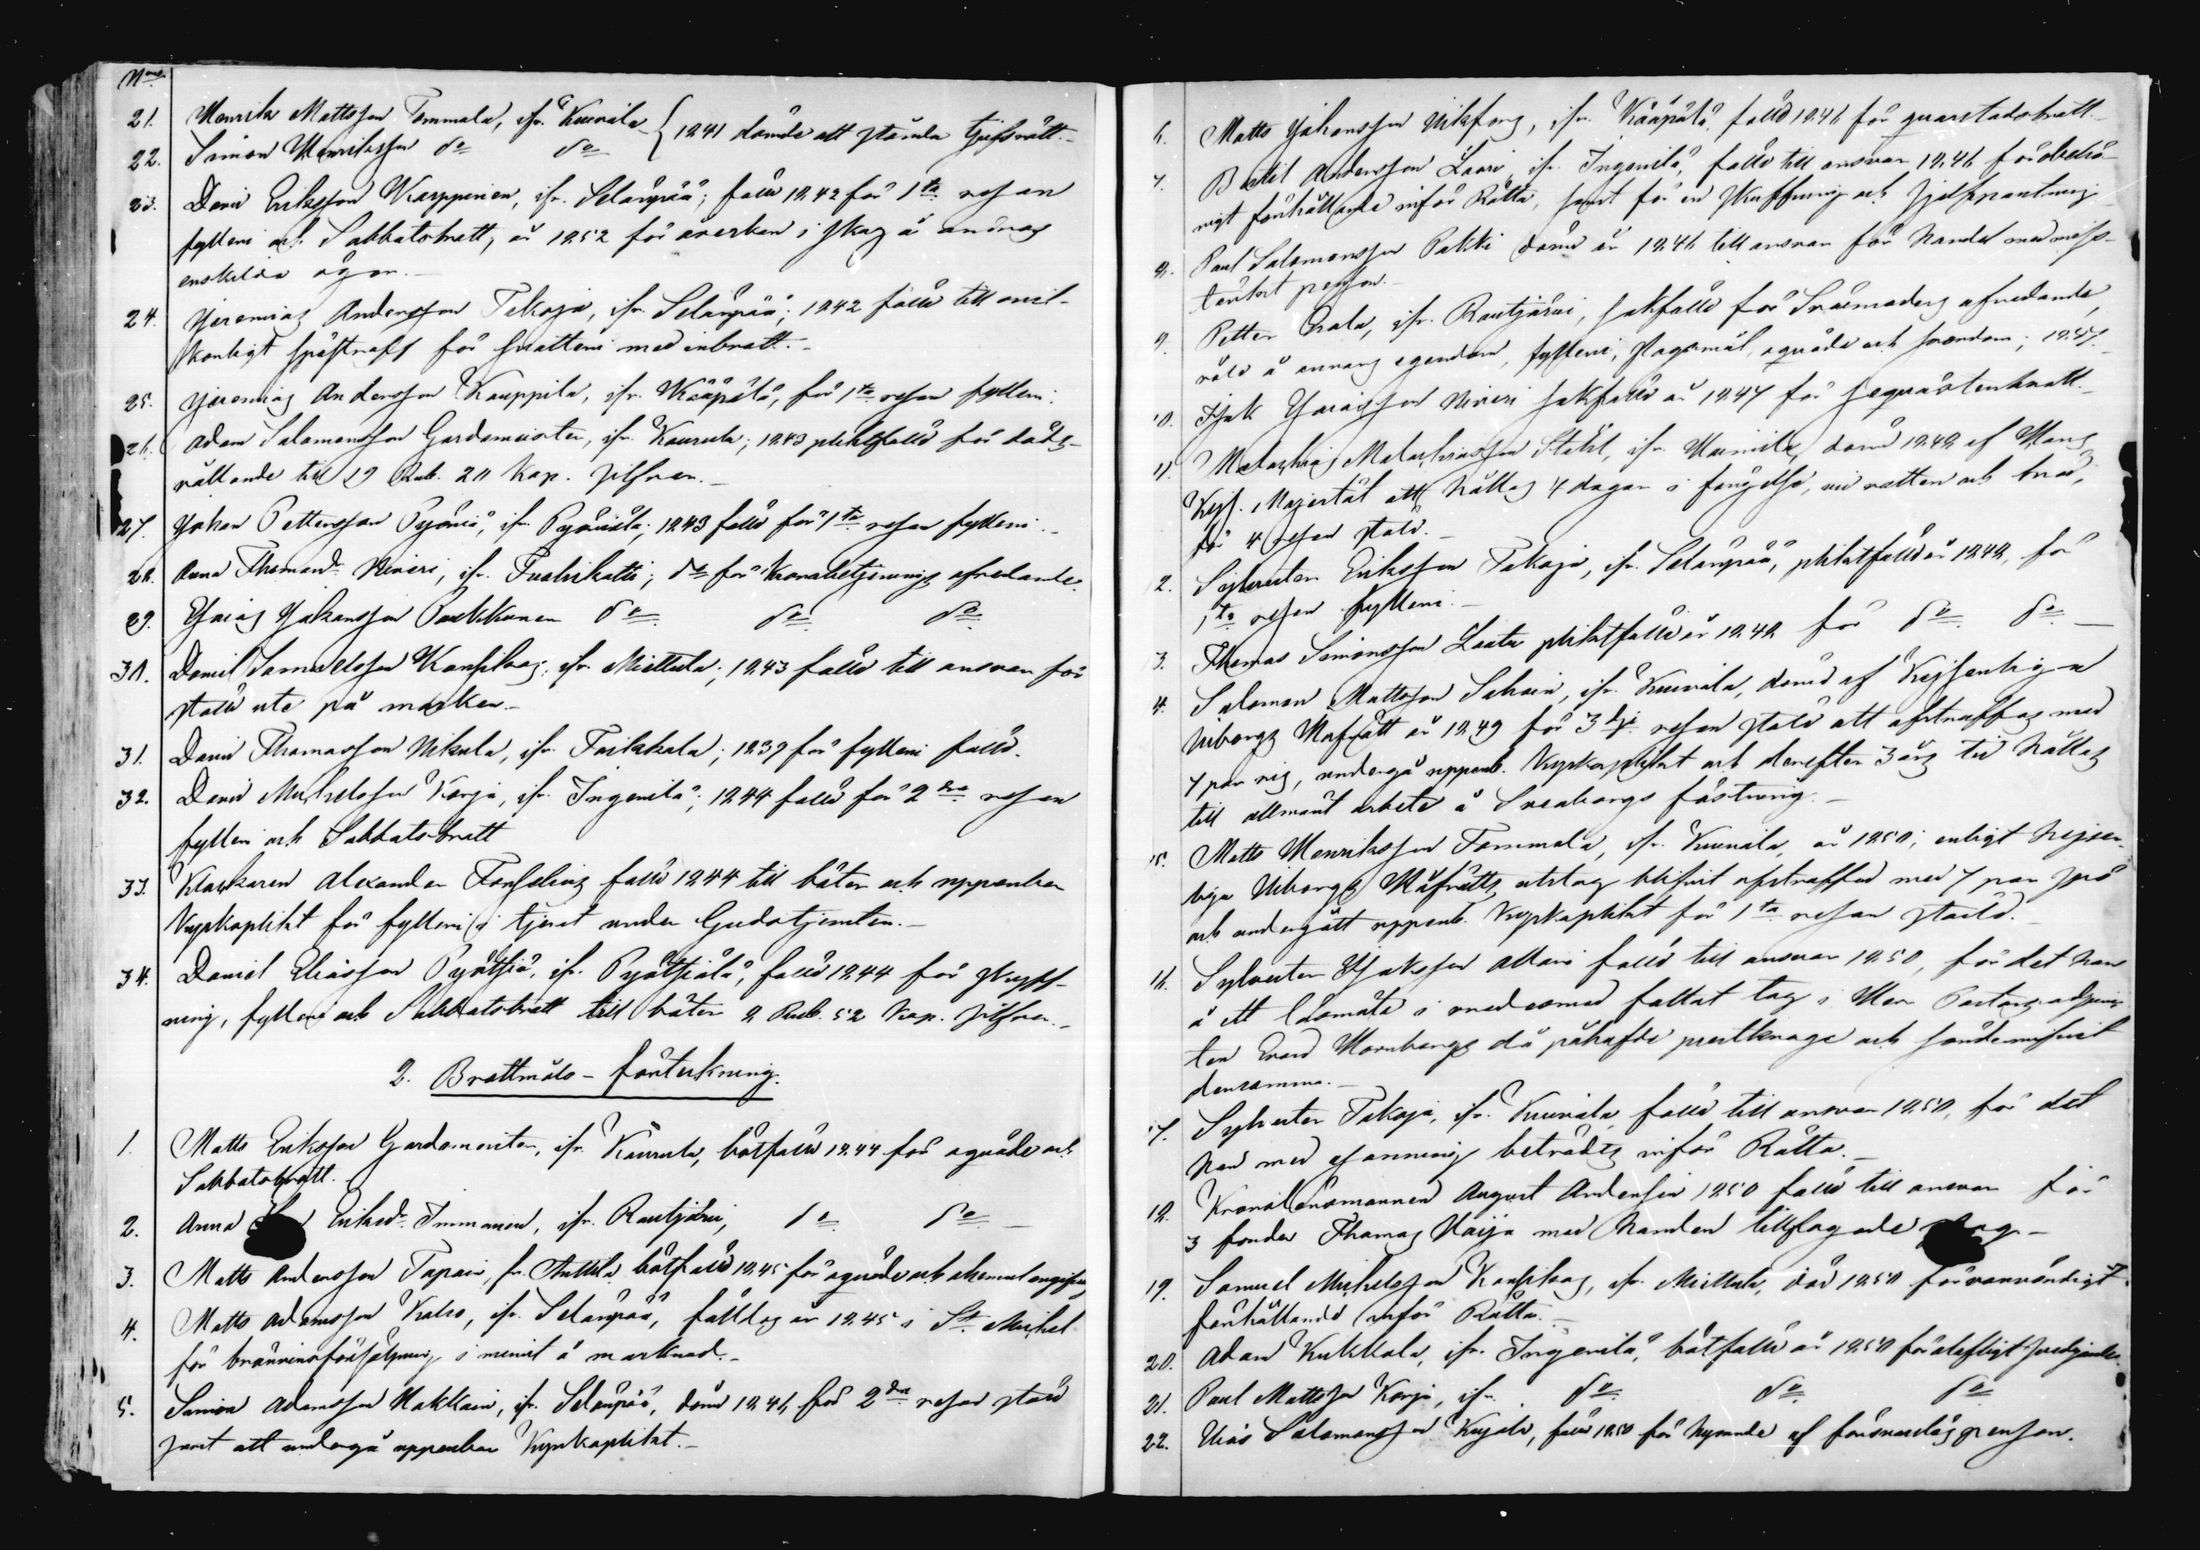 Nris
21. Henrik Mattsson Tommala, ifr. Kuivala } 1841 dömde att stämla tjufsrätt.
22. Simon Henriksson do do
23. David Eriksson Karppinen, ifr. Selänpää; fälld 1842 för 1sta resan
fylleri och Sabbatsbrott, år 1852 för åverkan i skog å annans
enskilda ägor.
24. Jeremias Andersson Tekoja, ifr. Selänpää; 1842 fälld till
spöstraff för snatteri med inbrott.
25. Jeremias Andersson Kauppila, ifr. Kääpälä, för 1sta resan fylleri.
26. Adam Salomonsson Gardemeister, ifr. Kaurula; 1843 pliktfälld för
vållande till 19 Rub. 20 Kop. silfver.
27. Johan Pettersson Pyöriä, ifr. Pyöriälä; 1843 fälld för 1sta resan fylleri.
28. Anna Thomasdr Niveri, ifr. do för Kronobetjenings ofredande.
29. Esaias Johansson Pukkunen do do do
30. Daniel Samuelsson, ifr. Miettula; 1843 fälld till ansvar för
stöld ute på marken.
31. David Thomasson Nikula, ifr. Toikkala; 1839 för fylleri fälld.
32. David Michelsson Korja, ifr. Ingerilä; 1844 fälld för 2dra resan
fylleri och Sabbatsbrott
33. Klockaren Alexander Forsselius fälld 1844 till böter och uppenbar
Kyrkoplikt för fylleri i tjenst under Gudstjensten.
34. Daniel Eliasson Pyötsiä, ifr. Pyötsiälä, fälld 1844 för
fylleri och Sabbatsbrott till böter 2 Rub. 52 Kop. silfver.
2. Brottmåls-förteckning.
1. Matts Eriksson Gardemeister, ifr. Kaurula, bötfälld 1844 för oqväde och
Sabbatsbrott.
2. Anna Eriksdr. Immonen, ifr. Rautjärvi, do do
3. Matts Andersson Tapani, fr. Anttila bötfälld 1845 för oqväde och
4. Matts Adamsson Kalso, ifr. Selänpää, fälldes år 1845 i St. Michel
för bränvinsförsäljning i minut å marknad.
5. Simon Adamsson Hakkain, ifr. Selänpää, dömd 1846 för 2dra resan stöld
samt att undergå uppenbar Kyrkoplikt.
6. Matts Johansson Vikfors, ifr. Kääpälä fälld 1846 för qvarstadsbrott.
7. Bertil Andersson Laari ifr. Ingerilä, fälld till ansvar 1846 för obehö-
rigt förhållande inför Rätta, samt för en och sjelfpantning
8. Paul Salomonsson Pakki dömd år 1846 till ansvar för handel med miss-
tänkt person.
9. Petter Orola, ifr. Rautjärvi, sakfälld för Svärmoders ofredande,
våld å annans egendom, fylleri, slagsmål, oqväde och svordom; 1847.
10. Isak Esaiasson Niveri sakfälld år 1847 för sequesterbrott.
11. Malachias Malachiasson Ståhl, ifr. dömd 1848 af Hans
Kejs. Majestät att hållas 4 dagar i fängelse, vid vatten och bröd,
för 4 resan stöld.
2. Sylvester Eriksson Tekoja, ifr. Selänpää, pliktfälld år 1848, för
1sta resan fylleri.
3. Thomas Simonsson Laita pliktfälld år 1848 för do do
4. Salomon Mattsson Sahari, ifr. Kuivala, dömd af Kejserliga
Viborgs Hofrätt år 1849 för 3dje resan stöld att afstraffas med
7 par ris, undergå uppenb. Kyrkoplikt och derefter 3 års tid hållas
till allmänt arbete å Sveaborgs fästning.
15. Matts Henriksson Tommala, ifr. Kuivala, år 1850; enligt Kejser-
liga Viborgs Hofrätts utslag blifvit afstraffad med 7 par spö
och undergått uppenb. Kyrkoplikt för 1sta resan stöld.
16. Sylvester Isaksson Allari fälld till ansvar 1850, för det han
å ett läsmöte i vredesmod fattat tag i Herr Pastors adjunk-
ten Evard Hornborgs då påhafde prestkrage och sönderrifvit
densamma.
17. Sylvester Tekoja, ifr. Kuivala fälld till ansvar 1850, för det
han med osanning beträddes inför Rätta.
18. Kronolänsmannen August Andersin 1850 fälld till ansvar för
3 bonden Thomas Haija med handen tillfogade slag
19. Samuel Michelsson, ifr. Miettula, död 1850 för vanvördigt
förhållande inför Rätta.
20. Adam Kukkola, ifr. Ingerilä, bötfälld år 1850 för olofligt svedjande.
21. Paul Mattsson Korja, ifr. do do do
22. Elias Salomonsson Kujala, fälld 1850 för hysande af försvarslös person.